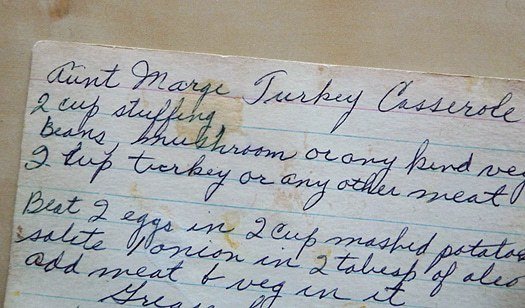 Aunt Marge Turkey Casserole
2 cup stuffing
Beans, mushroom or any kind veg
2 cup turkey or any other meat
Beat 2 eggs in 2 cup mashed potatoes
saute 1 onion in 2 tabesp of oleo
add meat & veg in it